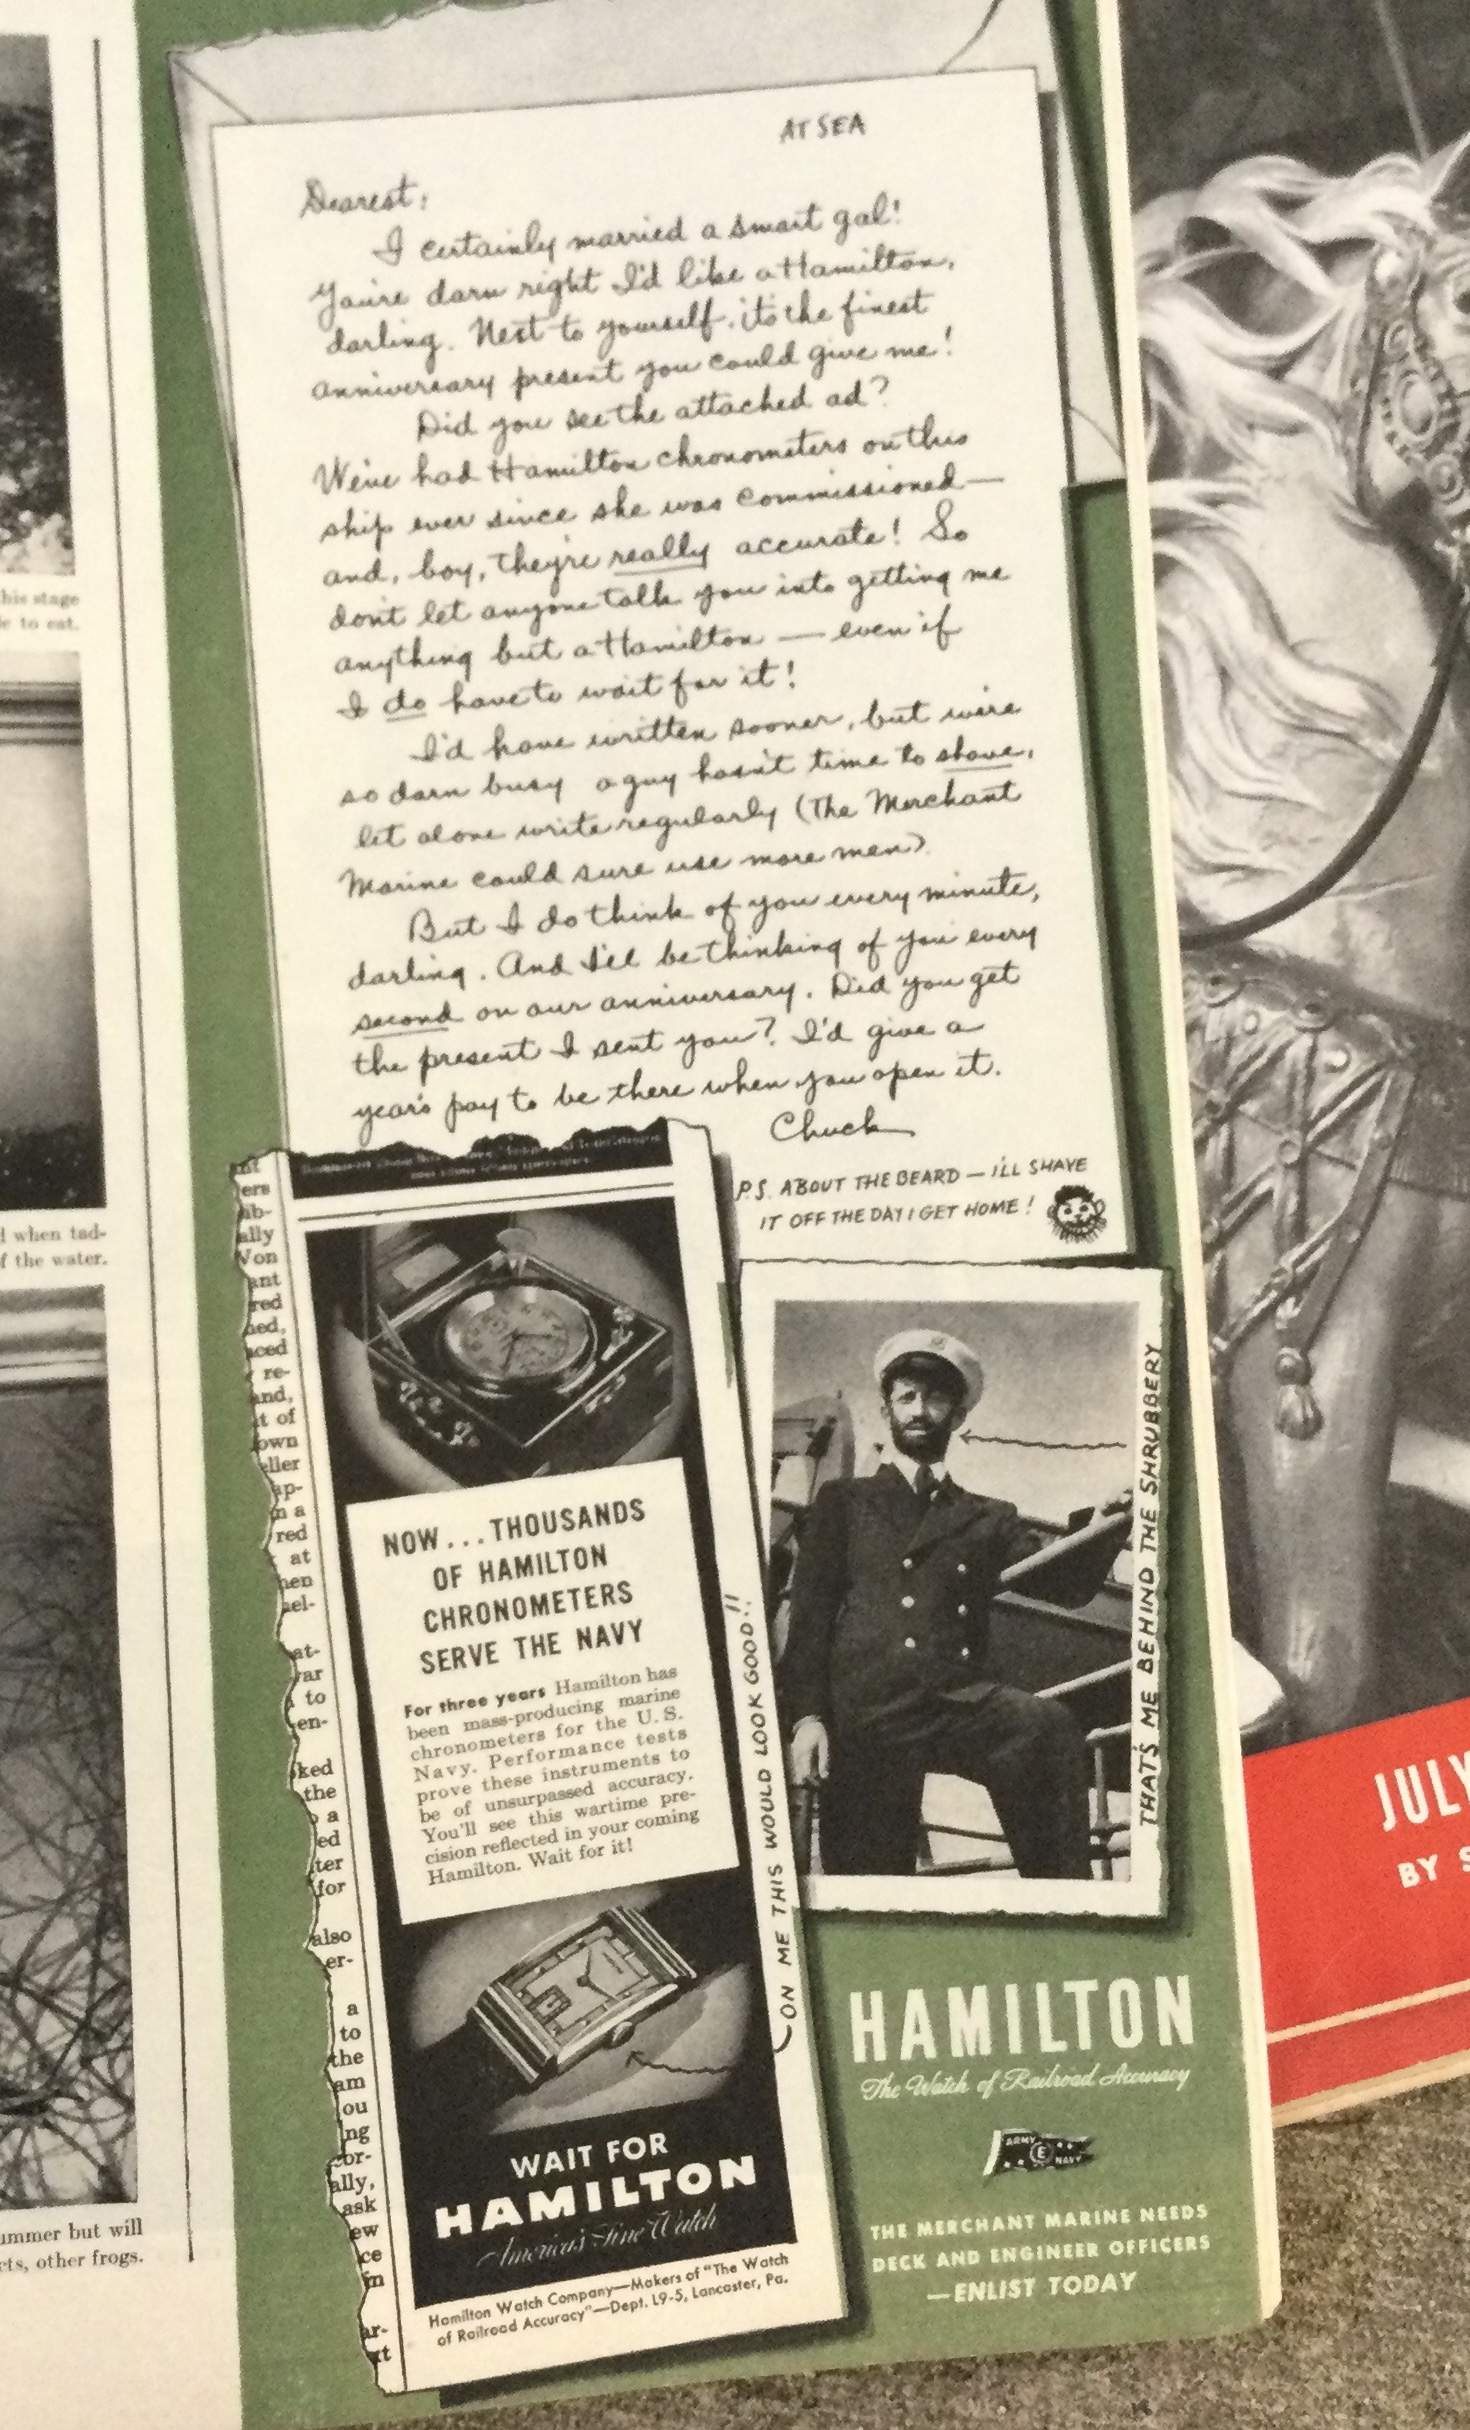 his stage
le to eat.
d when tad-
f the water.
ummer but will
cts, other frogs.
AT SEA
Dearest:
I certainly married a smart gal!
You're darn right I'd like a Hamilton,
darling. Next to yourself, it's the finest
anniversary present you could give me!
Did you see the attached ad?
We've had Hamilton chronometers on this
ship ever since she was commissioned—
and, boy, they're really accurate! So
don't let anyone talk you into getting me
anything but a Hamilton — even if
I do have to wait for it!
I'd have written sooner, but we're
so darn busy a guy hasn't time to shave,
let alone write regularly (The Merchant
Marine could sure use more men).
But I do think of you every minute,
darling. And I'll be thinking of you every
second on our anniversary. Did you get
the present I sent you? I'd give a
year's pay to be there when you open it.
Chuck
P.S. ABOUT THE BEARD — I'LL SHAVE
IT OFF THE DAY I GET HOME!
ers
ab-
ally
Von
ant
red
ned,
aced
re-
and,
t of
own
eller
ap-
n a
red
at
hen
sel-
at-
var
to
en-
ked
the
o a
ed
ter
for
also
er-
a
to
the
am
ou
ng
cor-
ally,
ask
ew
ce
in
ar-
xt
NOW...THOUSANDS
OF HAMILTON
CHRONOMETERS
SERVE THE NAVY
For three years Hamilton has
been mass-producing marine
chronometers for the U. S.
Navy. Performance tests
prove these instruments to
be of unsurpassed accuracy.
You'll see this wartime pre-
cision reflected in your coming
Hamilton. Wait for it!
WAIT FOR
HAMILTON
America's Fine Watch
Hamilton Watch Company—Makers of "The Watch
of Railroad Accuracy"—Dept. L9-5, Lancaster, Pa.
ON ME THIS WOULD LOOK GOOD!!
THAT'S ME BEHIND THE SHRUBBERY
HAMILTON
The Watch of Railroad Accuracy
ARMY E NAVY
THE MERCHANT MARINE NEEDS
DECK AND ENGINEER OFFICERS
—ENLIST TODAY
JULY
BY S